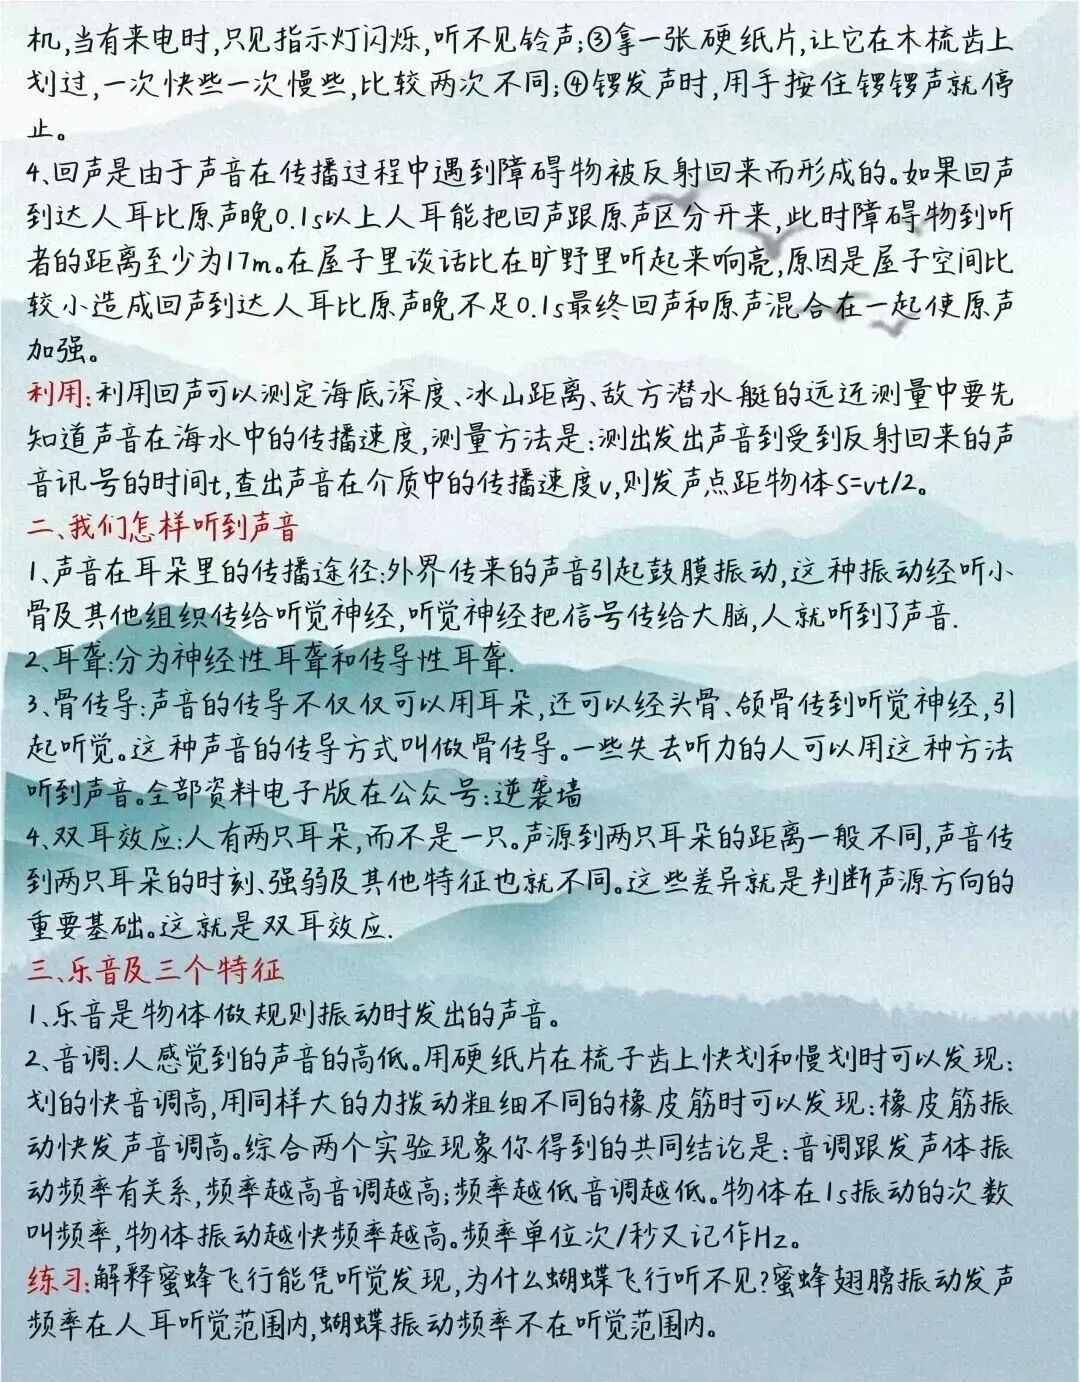 机,当有来电时,只见指示灯闪烁,听不见铃声;③拿一张硬纸片,让它在木梳齿上
划过,一次快些一次慢些,比较两次不同;④锣发声时,用手按住锣锣声就停
止。
4、回声是由于声音在传播过程中遇到障碍物被反射回来而形成的。如果回声
到达人耳比原声晚0.1s以上人耳能把回声跟原声区分开来,此时障碍物到听
者的距离至少为17m。在屋子里谈话比在旷野里听起来响亮,原因是屋子空间比
较小造成回声到达人耳比原声晚不足0.1s最终回声和原声混合在一起使原声
加强。
利用:利用回声可以测定海底深度、冰山距离、敌方潜水艇的远近测量中要先
知道声音在海水中的传播速度,测量方法是:测出发出声音到受到反射回来的声
音讯号的时间t,查出声音在介质中的传播速度v,则发声点距物体S=vt/2。
二、我们怎样听到声音
1、声音在耳朵里的传播途径:外界传来的声音引起鼓膜振动,这种振动经听小
骨及其他组织传给听觉神经,听觉神经把信号传给大脑,人就听到了声音.
2、耳聋:分为神经性耳聋和传导性耳聋.
3、骨传导:声音的传导不仅仅可以用耳朵,还可以经头骨、颌骨传到听觉神经,引
起听觉。这种声音的传导方式叫做骨传导。一些失去听力的人可以用这种方法
听到声音。全部资料电子版在公众号:逆袭墙
4、双耳效应:人有两只耳朵,而不是一只。声源到两只耳朵的距离一般不同,声音传
到两只耳朵的时刻、强弱及其他特征也就不同。这些差异就是判断声源方向的
重要基础。这就是双耳效应.
三、乐音及三个特征
1、乐音是物体做规则振动时发出的声音。
2、音调:人感觉到的声音的高低。用硬纸片在梳子齿上快划和慢划时可以发现:
划的快音调高,用同样大的力拨动粗细不同的橡皮筋时可以发现:橡皮筋振
动快发声音调高。综合两个实验现象你得到的共同结论是:音调跟发声体振
动频率有关系,频率越高音调越高;频率越低音调越低。物体在1s振动的次数
叫频率,物体振动越快频率越高。频率单位次/秒又记作Hz。
练习:解释蜜蜂飞行能凭听觉发现,为什么蝴蝶飞行听不见?蜜蜂翅膀振动发声
频率在人耳听觉范围内,蝴蝶振动频率不在听觉范围内。